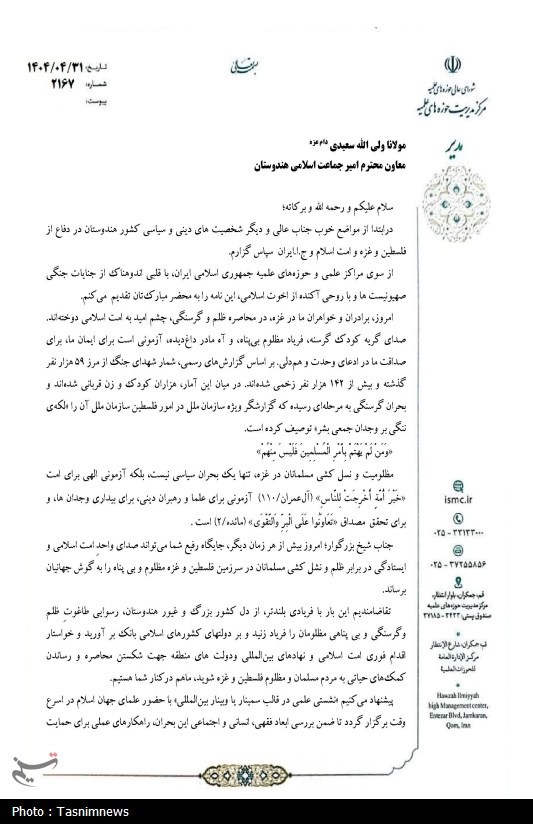 تاریخ: ۱۴۰۴/۰۴/۳۱
شماره: ۲۱۶۷
پیوست:
شورای عالی حوزه های علمیه
مرکز مدیریت حوزه های علمیه
مدیر
مولانا ولی الله سعیدی دام عزه
معاون محترم امیر جماعت اسلامی هندوستان
سلام علیکم و رحمه الله و برکاته؛
درابتدا از مواضع خوب جناب عالی و دیگر شخصیت های دینی و سیاسی کشور هندوستان در دفاع از
فلسطین و غزه و امت اسلام و ج.ا.ایران سپاس گزارم.
از سوی مراکز علمی و حوزه‌های علمیه جمهوری اسلامی ایران، با قلبی اندوهناک از جنایات جنگی
صهیونیست ها و با روحی آکنده از اخوت اسلامی، این نامه را به محضر مبارک‌تان تقدیم می‌کنم.
امروز، برادران و خواهران ما در غزه، در محاصره ظلم و گرسنگی، چشم امید به امت اسلامی دوخته‌اند.
صدای گریه کودک گرسنه، فریاد مظلوم بی‌پناه، و آه مادر داغ‌دیده، آزمونی است برای ایمان ما، برای
صداقت ما در ادعای وحدت و هم‌دلی. بر اساس گزارش‌های رسمی، شمار شهدای جنگ از مرز ۵۹ هزار نفر
گذشته و بیش از ۱۴۲ هزار نفر زخمی شده‌اند. در میان این آمار، هزاران کودک و زن قربانی شده‌اند و
بحران گرسنگی به مرحله‌ای رسیده که گزارشگر ویژه سازمان ملل در امور فلسطین سازمان ملل آن را «لکه‌ی
ننگی بر وجدان جمعی بشر» توصیف کرده است.
«وَمَنْ لَمْ يَهْتَمَّ بِأَمْرِ الْمُسْلِمِينَ فَلَيْسَ مِنْهُمْ»
مظلومیت و نسل کشی مسلمانان در غزه، تنها یک بحران سیاسی نیست، بلکه آزمونی الهی برای امت
«خَيْرَ أُمَّةٍ أُخْرِجَتْ لِلنَّاسِ» (آل‌عمران/۱۱۰) آزمونی برای علما و رهبران دینی، برای بیداری وجدان ها، و
برای تحقق مصداق «تَعَاوَنُوا عَلَى الْبِرِّ وَالتَّقْوَى» (مائده/۲) است .
جناب شیخ بزرگوار؛ امروز بیش از هر زمان دیگر، جایگاه رفیع شما می‌تواند صدای واحدِ امت اسلامی و
ایستادگی در برابر ظلم و نشل کشی مسلمانان در سرزمین فلسطین و غزه مظلوم و بی پناه را به گوش جهانیان
برساند.
تقاضامندیم این بار با فریادی بلندتر، از دل کشور بزرگ و غیور هندوستان، رسوایی طاغوتِ ظلم
وگرسنگی و بی پناهی مظلومان را فریاد زنید و بر دولتهای کشورهای اسلامی بانک بر آورید و خواستار
اقدام فوری امت اسلامی و نهادهای بین‌المللی ودولت های منطقه جهت شکستن محاصره و رساندن
کمک‌های حیاتی به مردم مسلمان و مظلوم فلسطین و غزه شوید، ماهم درکنار شما هستیم.
پیشنهاد می‌کنیم «نشستی علمی در قالب سمینار یا وبینار بین‌المللی» با حضور علمای جهان اسلام در اسرع
وقت برگزار گردد تا ضمن بررسی ابعاد فقهی، انسانی و اجتماعی این بحران، راهکارهای عملی برای حمایت
ismc.ir
۰۲۵ - ۳۲۱۳۳۰۰۰
۰۲۵ - ۳۷۲۵۵۸۵۶
قم، جمکران، بلوار انتظار،
مرکز مدیریت حوزه‌های علمیه
صندوق پستی: ۳۴۳۳ - ۳۷۱۸۵
قم، جمکران، شارع الإنتظار
مرکز الإدارة العامة
للحوزات العلمیة
Hawzah Ilmiyyah
high Management center,
Entezar Blvd, Jamkaran,
Qom, Iran
تسنیم
Photo : Tasnimnews